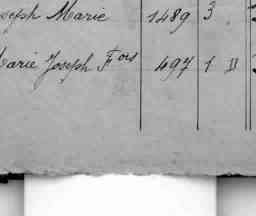 Joseph Marie 1489 3
Marie Joseph Fois 497 1 D